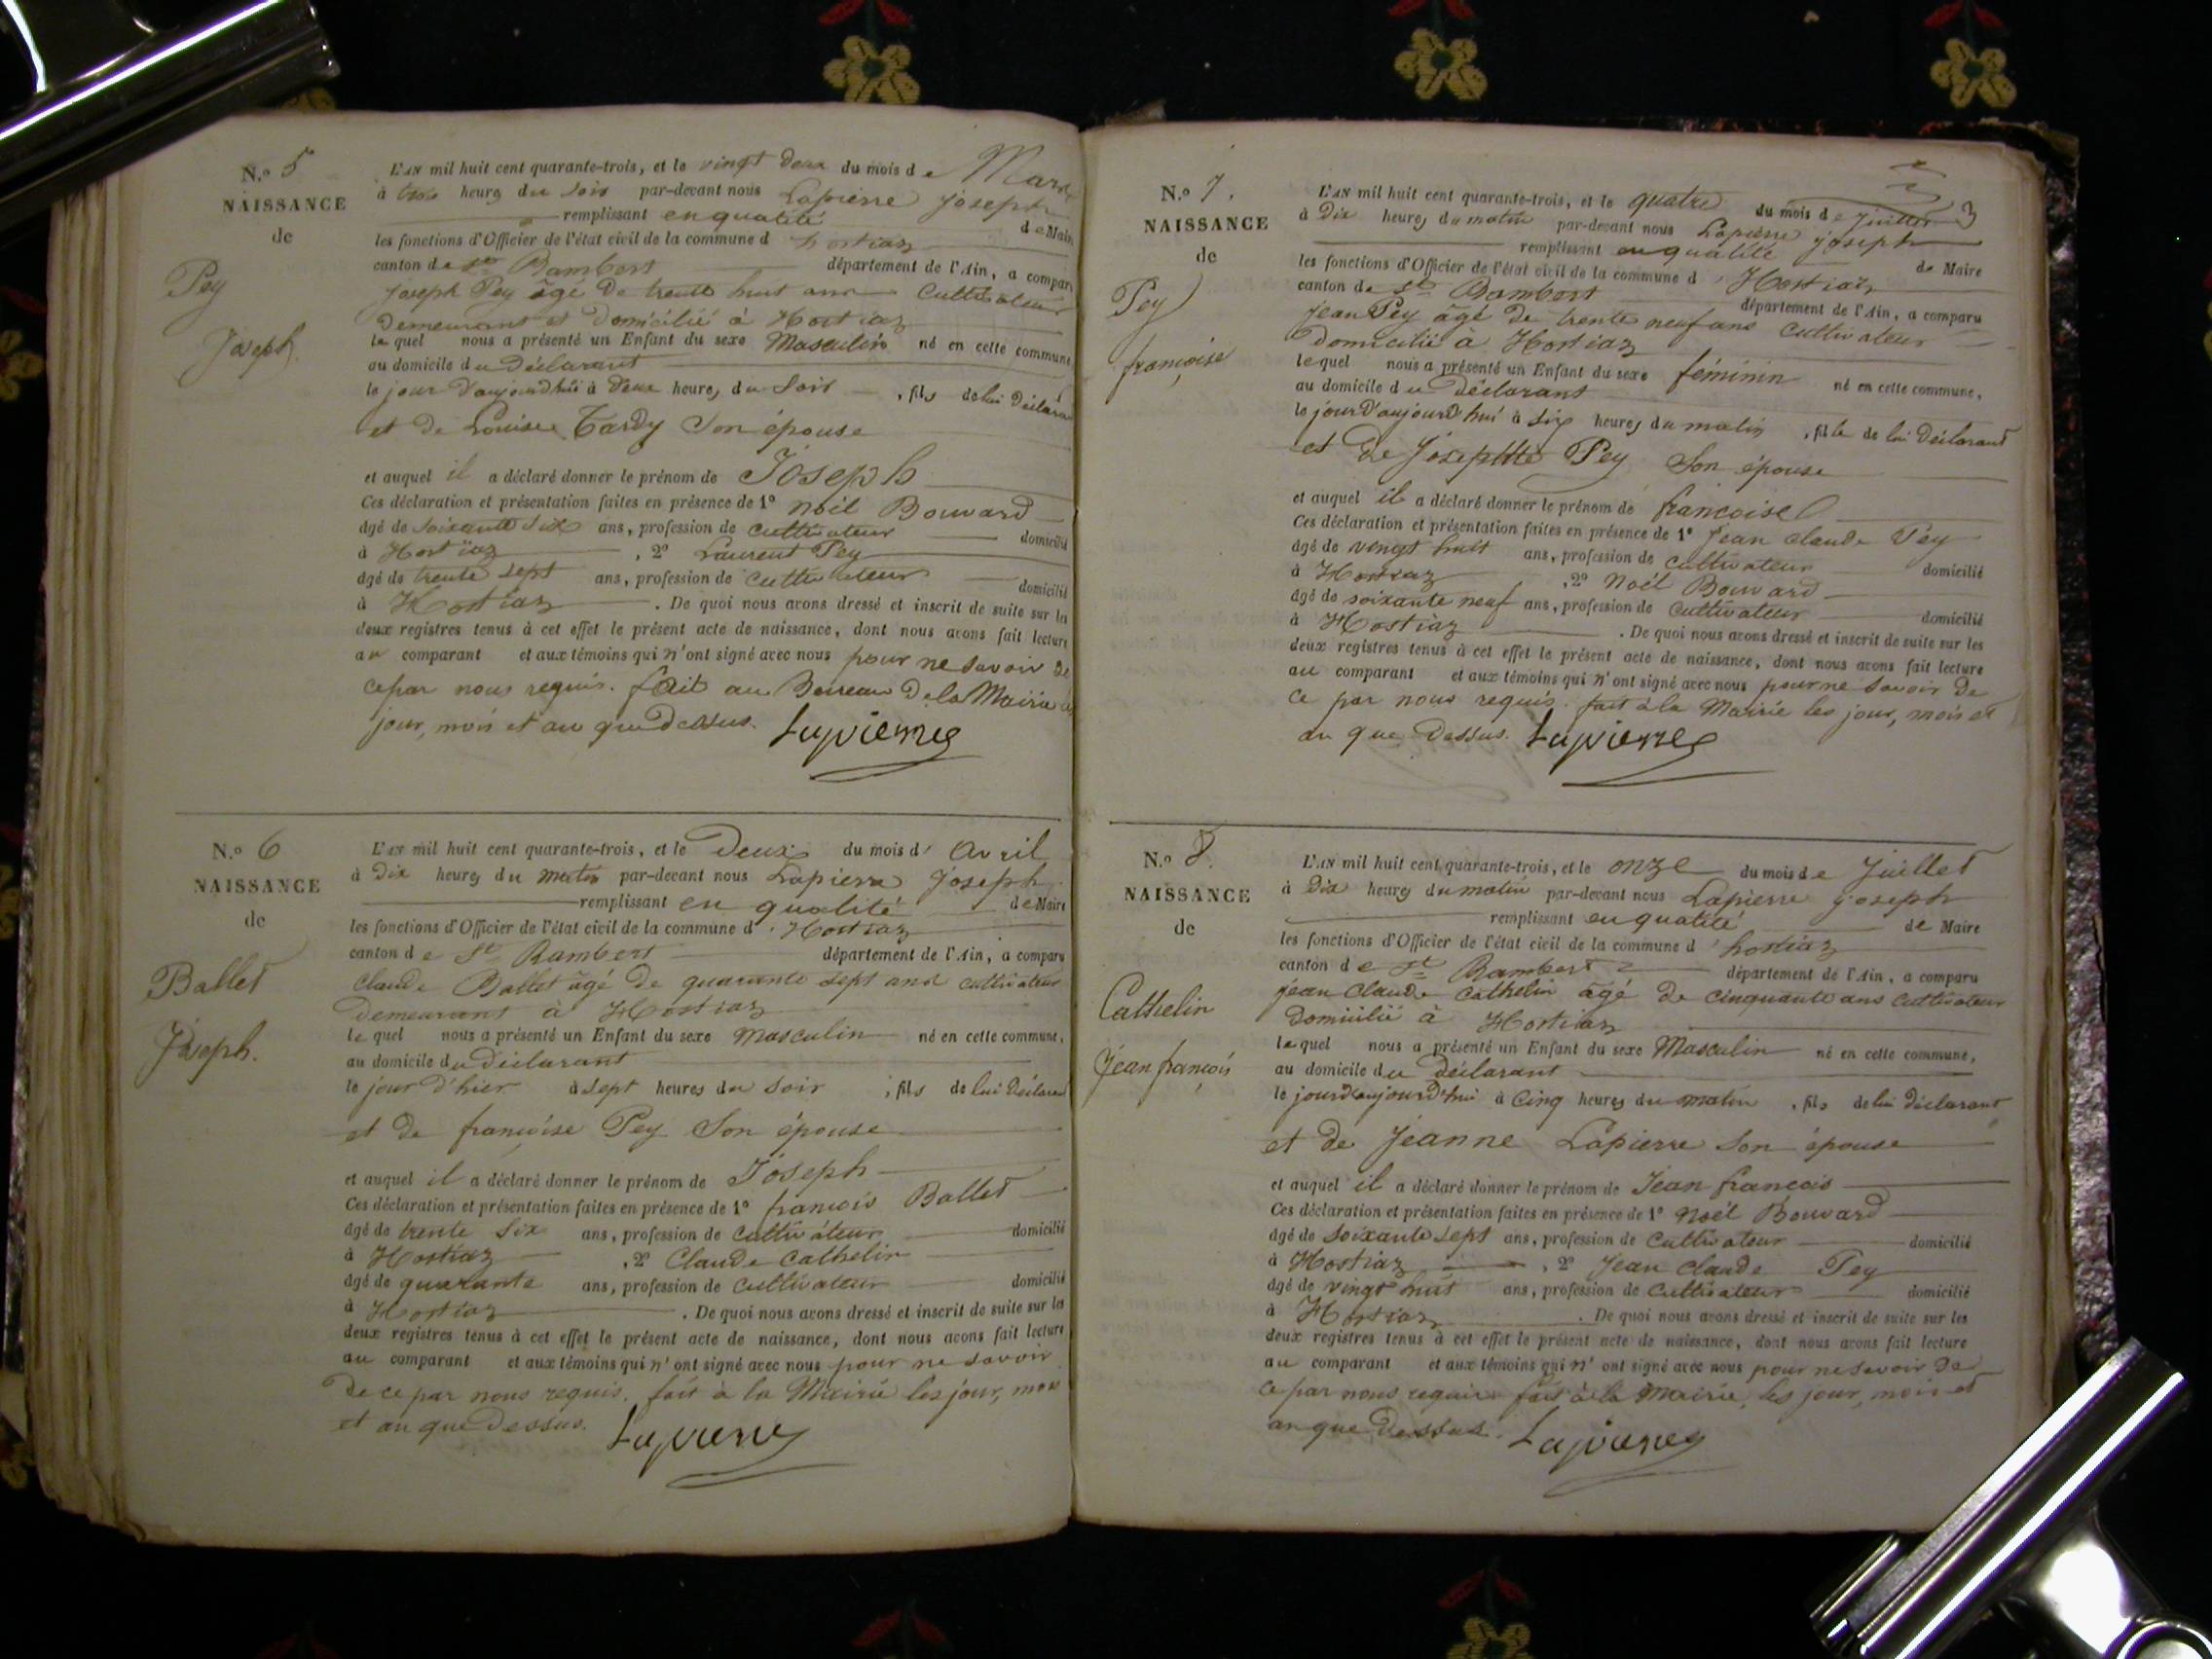 N.º 5
NAISSANCE
de
Pey
Joseph.
L'AN mil huit cent quarante-trois, et le vingt deux du mois de Mars
à trois heures du soir par-devant nous Lapierre Joseph
remplissant en qualité de Maire
les fonctions d'Officier de l'état civil de la commune d hostiaz
canton de St Rambert département de l'Ain, a comparu
Joseph Pey âgé de trente huit ans Cultivateur
demeurant et domicilié à Hostiaz
le quel nous a présenté un Enfant du sexe Masculin né en cette commune
au domicile du Déclarant
le jour d'aujourdhui à deux heures du soir , fils de lui Déclarant
et de Louise Tardy son épouse
et auquel il a déclaré donner le prénom de Joseph
Ces déclaration et présentation faites en présence de 1º noël Bouvard
âgé de soixante six ans, profession de cultivateur domicilié
à Hostiaz , 2º Laurent Pey
âgé de trente sept ans, profession de cultivateur domicilié
à Hostiaz . De quoi nous avons dressé et inscrit de suite sur les
deux registres tenus à cet effet le présent acte de naissance, dont nous avons fait lecture
au comparant et aux témoins qui n'ont signé avec nous pour ne savoir de
ce par nous requis. fait au Bureau de la Mairie les
jour, mois et an que dessus. Lapierre
N.º 6
NAISSANCE
de
Ballet
Joseph.
L'AN mil huit cent quarante-trois, et le Deux du mois d' Avril
à dix heures du matin par-devant nous Lapierre Joseph
remplissant en qualité de Maire
les fonctions d'Officier de l'état civil de la commune d' Hostiaz
canton de St Rambert département de l'Ain, a comparu
Claude Ballet âgé de quarante sept ans cultivateur
demeurant à Hostiaz
le quel nous a présenté un Enfant du sexe Masculin né en cette commune,
au domicile du Déclarant
le jour d'hier à sept heures du soir , fils de lui Déclarant
et de françoise Pey son épouse
et auquel il a déclaré donner le prénom de Joseph
Ces déclaration et présentation faites en présence de 1º francois Ballet
âgé de trente six ans, profession de cultivateur domicilié
à Hostiaz , 2º Claude Cathelin
âgé de quarante ans, profession de cultivateur domicilié
à Hostiaz . De quoi nous avons dressé et inscrit de suite sur les
deux registres tenus à cet effet le présent acte de naissance, dont nous avons fait lecture
au comparant et aux témoins qui n'ont signé avec nous pour ne savoir
de ce par nous requis. fait à la Mairie les jour, mois
et an que dessus. Lapierre
3
N.º 7.
NAISSANCE
de
Pey
françoise
L'AN mil huit cent quarante-trois, et le quatre du mois de Juillet
à Dix heures du matin par-devant nous Lapierre Joseph
remplissant en qualité de Maire
les fonctions d'Officier de l'état civil de la commune d' Hostiaz
canton de St Rambert département de l'Ain, a comparu
jean Pey âgé de trente neuf ans cultivateur
domicilié à Hostiaz
le quel nous a présenté un Enfant du sexe féminin né en cette commune,
au domicile du Déclarant
le jour d'aujourd'hui à six heures du matin , fille de lui Déclarant
et de Josephte Pey son épouse
et auquel il a déclaré donner le prénom de francoise
Ces déclaration et présentation faites en présence de 1º Jean claude Pey
âgé de vingt huit ans, profession de cultivateur domicilié
à Hostiaz , 2º Noël Bouvard
âgé de soixante neuf ans, profession de cultivateur domicilié
à Hostiaz . De quoi nous avons dressé et inscrit de suite sur les
deux registres tenus à cet effet le présent acte de naissance, dont nous avons fait lecture
au comparant et aux témoins qui n'ont signé avec nous pour ne savoir de
ce par nous requis. fait à la Mairie les jour, mois et
an que dessus. Lapierre
N.º 8.
NAISSANCE
de
Cathelin
Jean françois
L'AN mil huit cent quarante-trois, et le onze du mois de Juillet
à Dix heures du matin par-devant nous Lapierre Joseph
remplissant en qualité de Maire
les fonctions d'Officier de l'état civil de la commune d' hostiaz
canton de St Rambert département de l'Ain, a comparu
jean claude Cathelin âgé de cinquante ans cultivateur
domicilié à Hostiaz
le quel nous a présenté un Enfant du sexe Masculin né en cette commune,
au domicile du Déclarant
le jour d'aujourd'hui à Cinq heures du matin , fils de lui déclarant
et de Jeanne Lapierre son épouse
et auquel il a déclaré donner le prénom de Jean françois
Ces déclaration et présentation faites en présence de 1º Noël Bouvard
âgé de soixante sept ans, profession de cultivateur domicilié
à Hostiaz , 2º Jean Claude Pey
âgé de vingt huit ans, profession de cultivateur domicilié
à Hostiaz . De quoi nous avons dressé et inscrit de suite sur les
deux registres tenus à cet effet le présent acte de naissance, dont nous avons fait lecture
au comparant et aux témoins qui n'ont signé avec nous pour ne savoir de
ce par nous requis fait à la Mairie, les jour, mois et
an que dessus. Lapierre